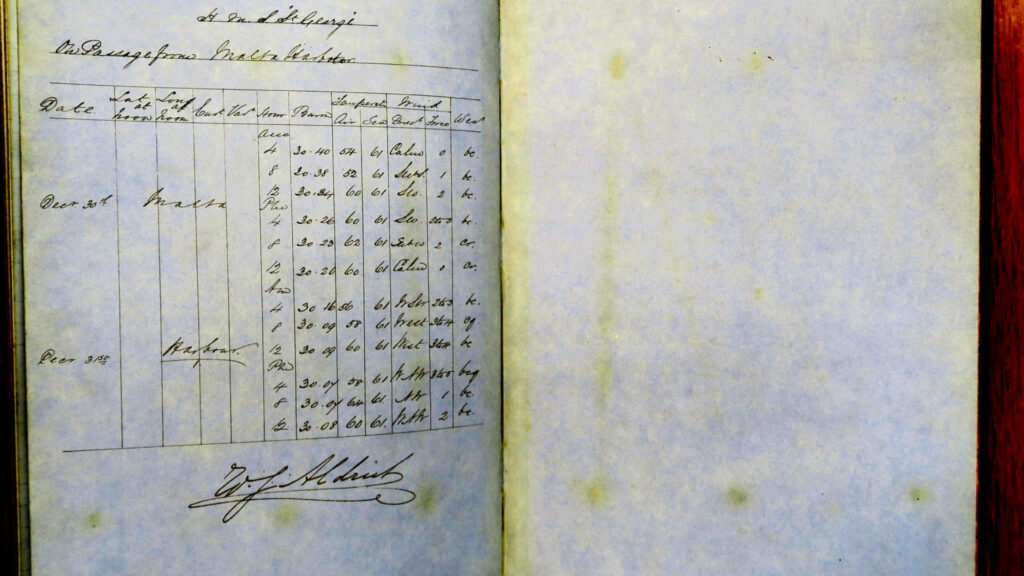 H M S St George
On Passage from Malta Harbour
Date Lat at noon Long at noon Curt Var Hour Barm Temperat Air Sea Wind Direct Force Weat
Am
4 30.40 54 61 Calm 0 bc.
8 30.38 52 61 1 bc.
Decr 30th Malta 12 30.34 60 61 2 bc.
Pm
4 30.26 60 61 2 to 3 bc.
8 30.23 62 61 2 cr.
12 30.20 60 61 Calm 0 cr.
Am
4 30.16 56 61 WSW 2 to 3 bc.
8 30.09 58 61 West 3 to 4 cq.
Decr 31st Harbour. 12 30.09 60 61 West 3 to 4 bc
Pm
4 30.07 58 61 WNW bcq
8 30.07 64 61 NW 1 bc.
12 30.08 60 61. WNW 2 bc.
W J Aldrich